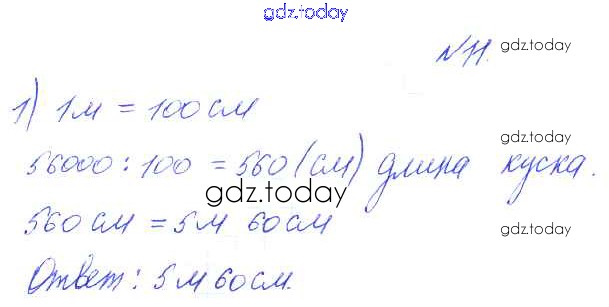 gdz.today
№11. gdz.today
1) 1м = 100 см
gdz.today
56000 : 100 = 560 (см) длина куска.
gdz.today
gdz.today
560 см = 5 м 60 см
gdz.today
Ответ: 5 м 60 см.
gdz.today